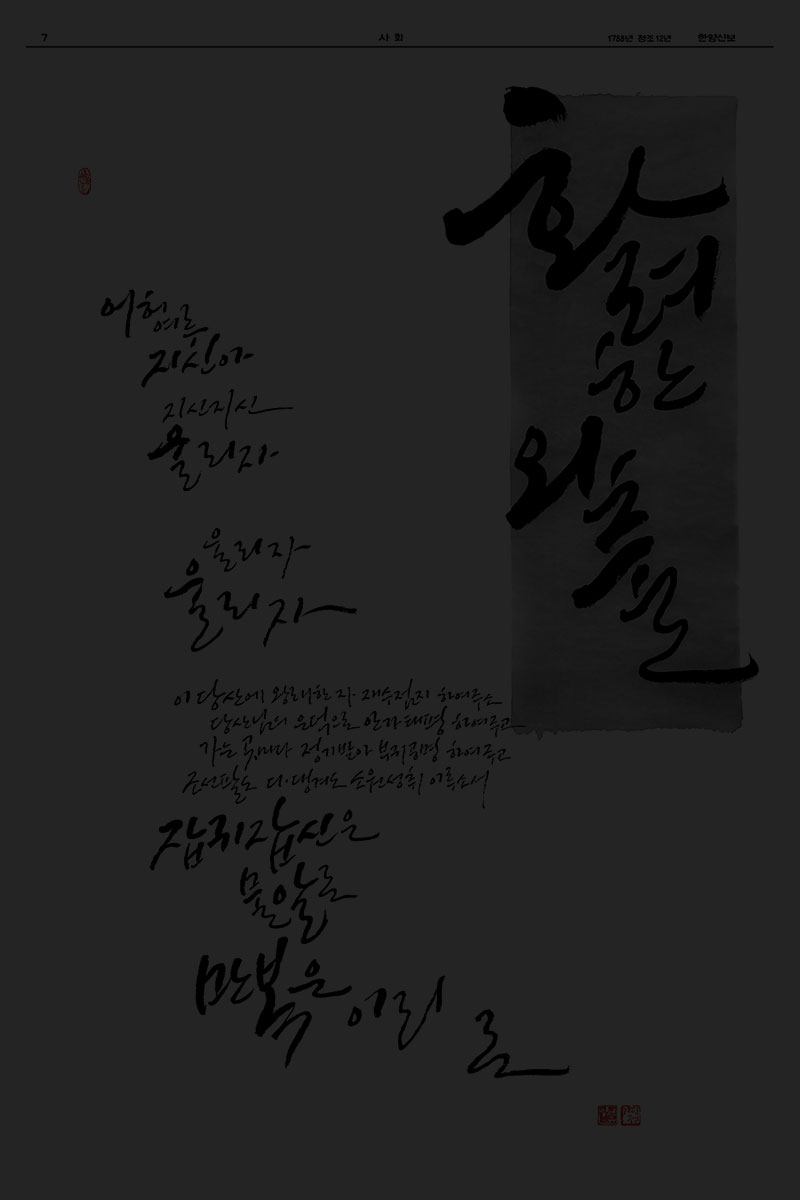 7 사 회 1788년 정조 12년 한양신보
화
려
한
외
출
어헝여루
지신아
지신지신
울리자
울리자
울리자
이 당산에 왕래한 자 재수점지 하여주소
당산님의 은덕으로 안가태평 하여주고
가는 곳마다 정기받아 부귀공명 하여주고
조선팔도 다 댕겨도 소원성취 이루소서
잡귀잡신은
물알로
만복은 이리
로